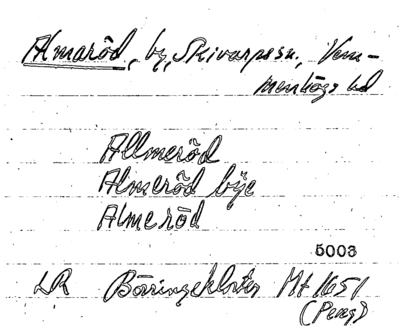 Almaröd, by, Skivarps sn, Vem-
menhögs hd
Allmeröd
Almeröd bÿe
Almeröd
5003
LR Börringekloster Mt 1651
(Peng)